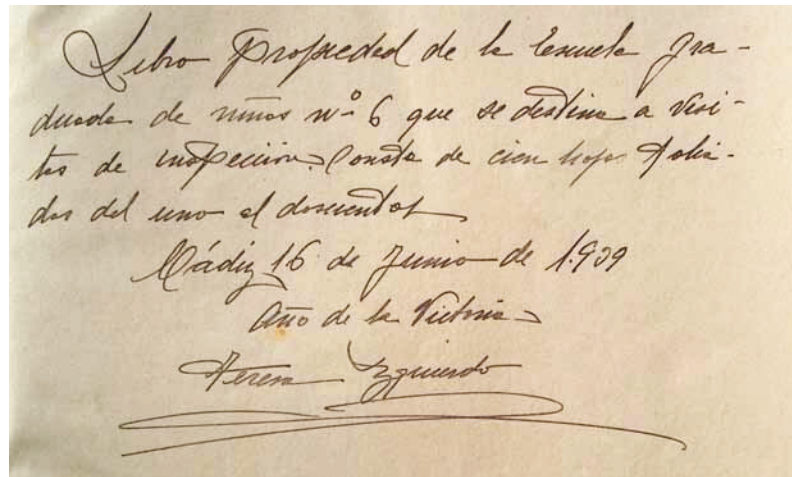 Libro Propiedad de la Escuela Gra-
duada de niños nº 6 que se destina a visi-
tas de inspección. Consta de cien hojas folia-
das del uno al doscientos
Cádiz 16 de Junio de 1.939
Año de la Victoria
Teresa Izquierdo